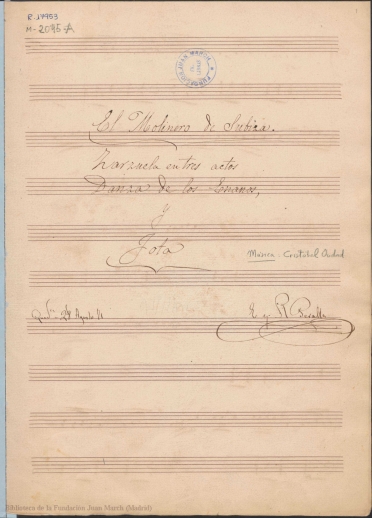 R. 17953
M-2095-A
El Molinero de Subiza.
Zarzuela en tres actos
Danza de los Enanos,
y
Jota
Música - Cristóbal Oudrid
Agosto
E. y R.
Biblioteca de la Fundación Juan March (Madrid)